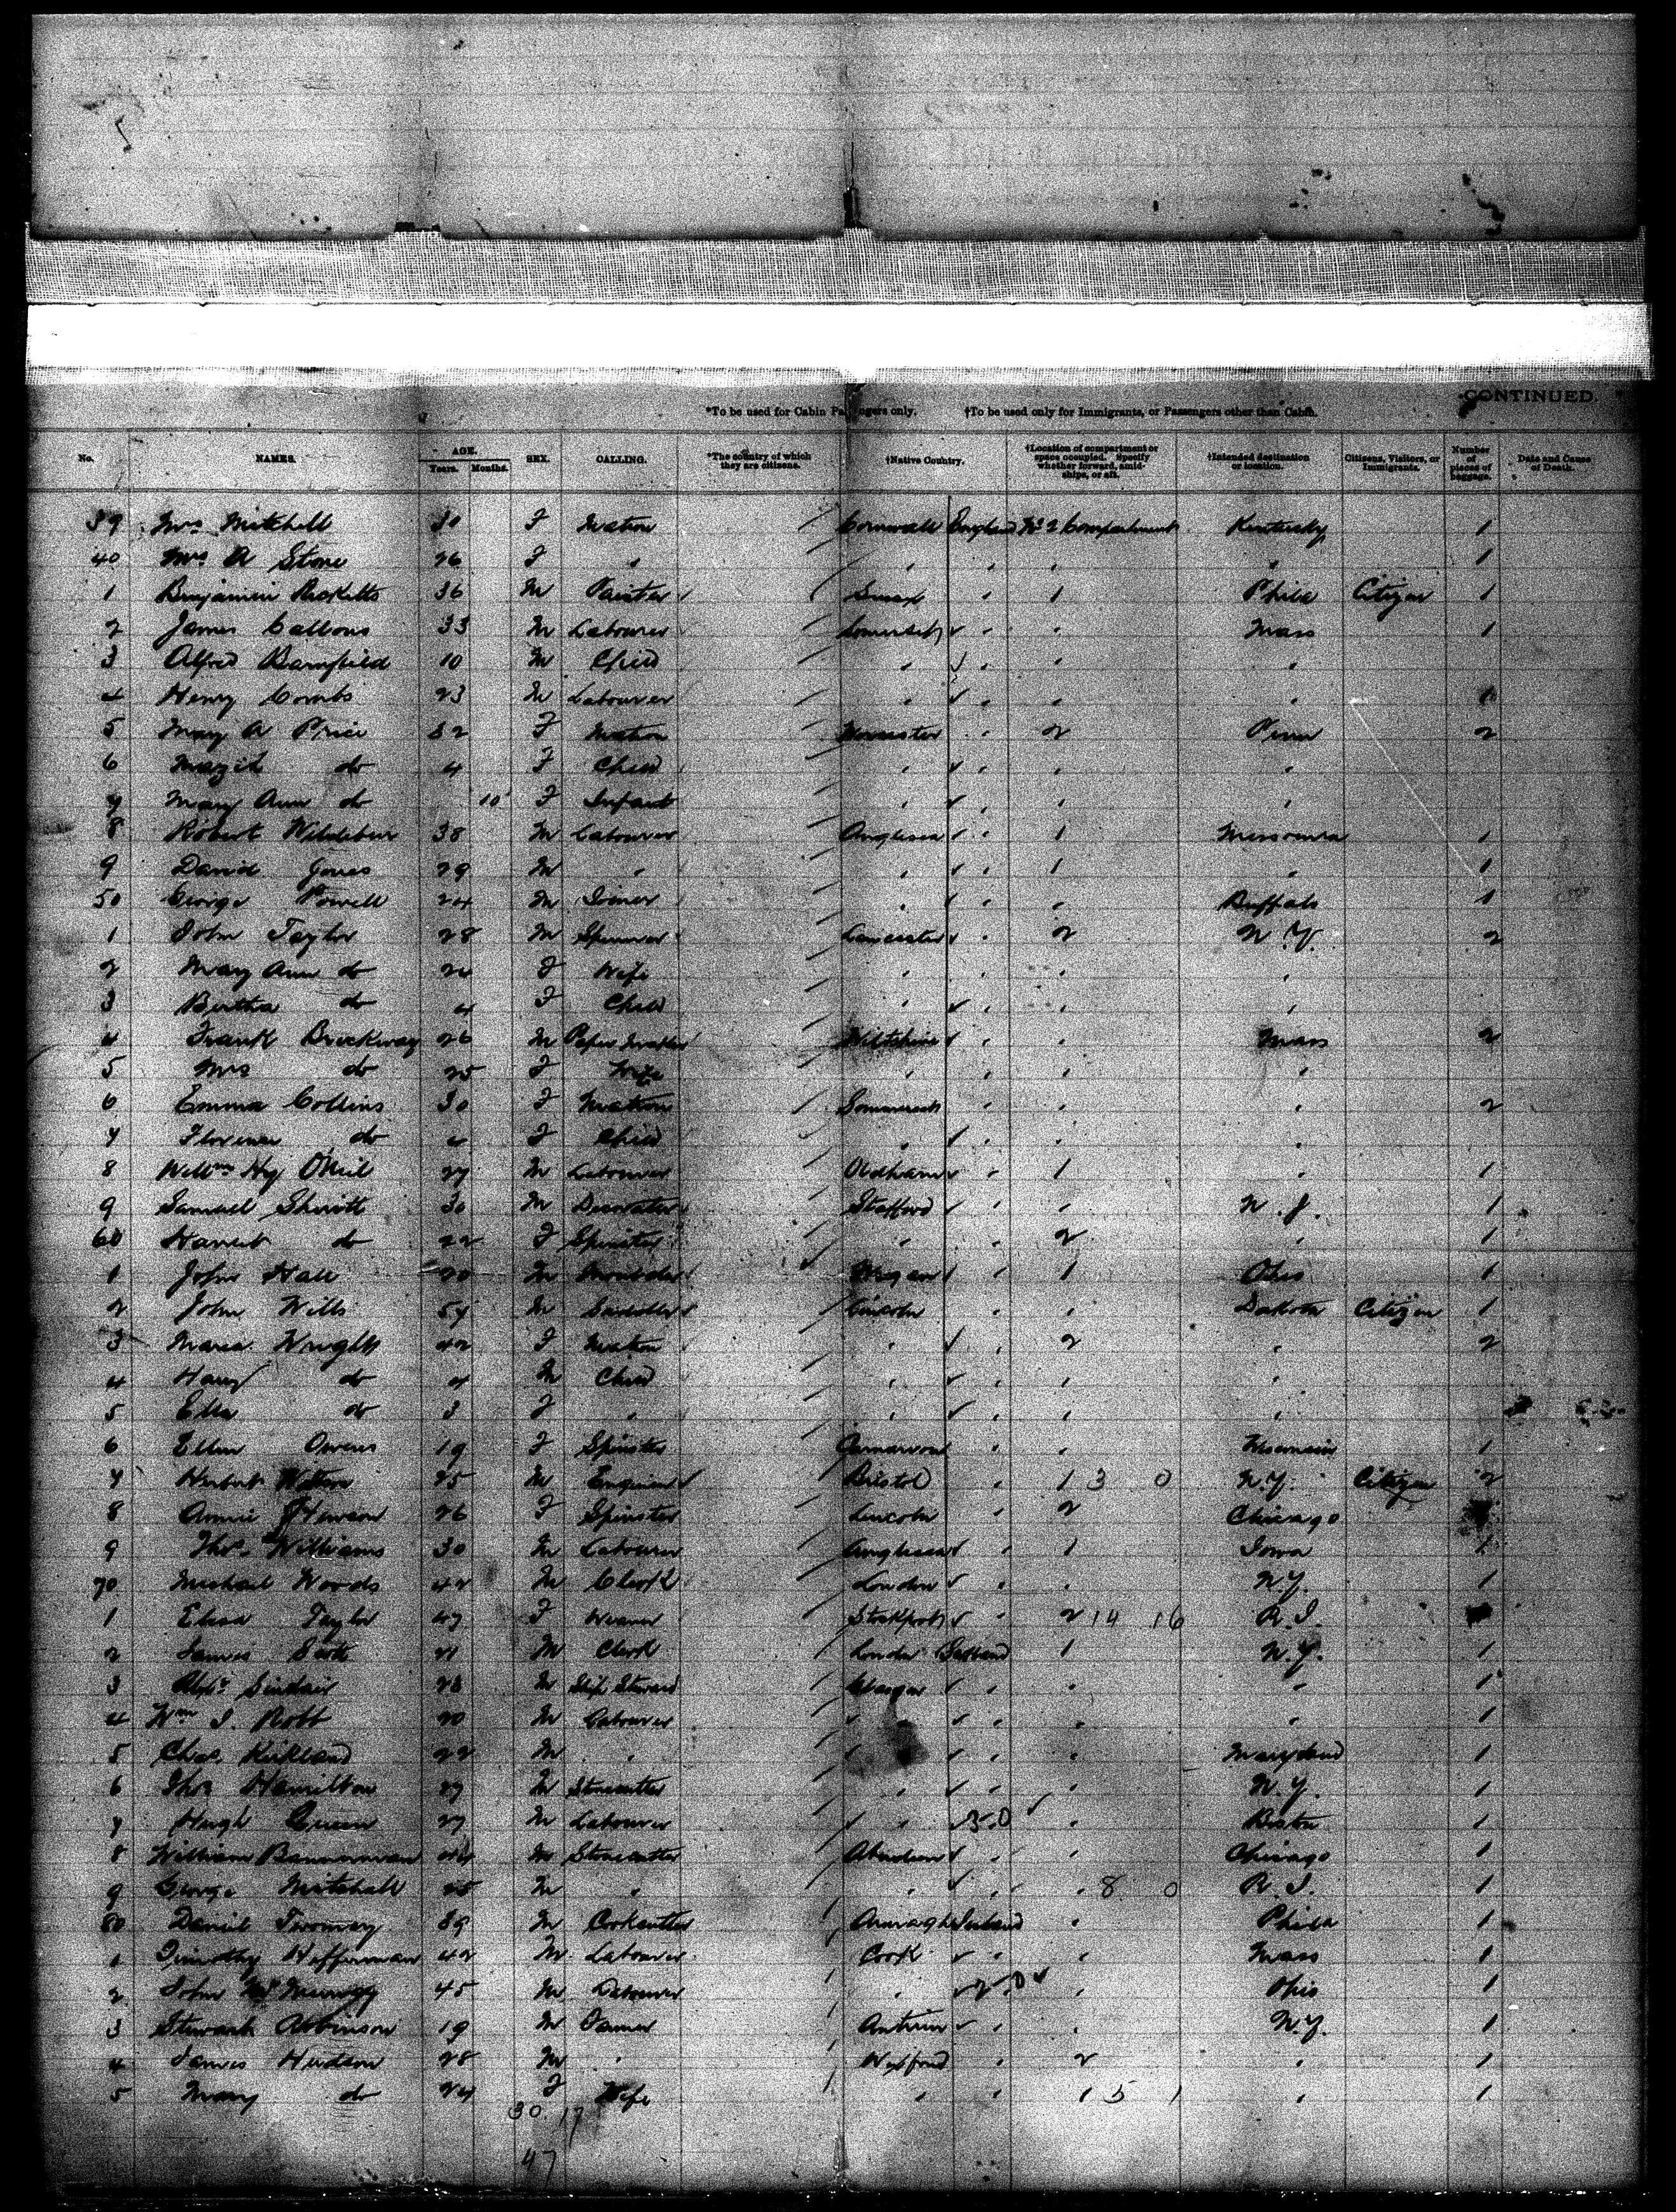 CONTINUED.
*To be used for Cabin Passengers only. †To be used only for Immigrants, or Passengers other than Cabin.
No. NAMES. AGE. Years. Months. SEX. CALLING. *The country of which they are citizens. †Native Country. †Location of compartment or space occupied. Specify whether forward, amidships, or aft. †Intended destination or location. Citizens, Visitors, or Immigrants. Number of pieces of baggage. Date and Cause of Death.
39 Mrs Mitchell 30 F Matron Cornwall England No 2 Compartment Kentucky 1
40 Mrs A Stone 26 F " " " " " 1
1 Benjamin Ricketts 36 M Painter " 1 Phila Citizen 1
2 James 33 M Labourer Somerset " " Mass 1
3 Alfred Bamfield 10 M Child " " " "
4 Henry Combs 23 M Labourer " " " 1
5 Mary A Price 32 F Matron Worcester " 2 Penn 2
6 do 4 F Child " " " "
7 Mary Ann do 10 F Infant " " " "
8 Robert 38 M Labourer Anglesea " 1 1
9 David Jones 29 M " " " 1 " 1
50 George Powell 24 M Joiner " " " Buffalo 1
1 John Taylor 28 M Spinner Lancaster " 2 N.Y. 2
2 Mary Ann do 24 F Wife " " " "
3 Bertha do 4 F Child " " " "
4 Frank Brockway 26 M Paper Maker Wiltshire " " Mass 2
5 Mrs do 25 F Wife " " " "
6 Emma Collins 30 F Matron " " " 2
7 Florence do 4 F Child " " " "
8 Willm Hy O'Neil 27 M Labourer Oldham " 1 " 1
9 Samuel 30 M Decorator Stafford " " N.J. 1
60 Harriet do 22 F Spinster " " 2 " 1
1 John Hall 20 M Moulder Wigan " 1 Ohio 1
2 John Wills 57 M Lincoln " " Dakota Citizen 1
3 Maria Wright 42 F Matron " " 2 " 2
4 Harry do 4 M Child " " " "
5 Ella do 3 F " " " " "
6 Ellen Owens 19 F Spinster Carnarvon " " Wisconsin 1
7 Herbert 25 M Engineer Bristol " 1 3 0 N.Y. Citizen 2
8 Annie 26 F Spinster Lincoln " 2 Chicago
9 Thos Williams 30 M Labourer Anglesea " 1 Iowa 1
70 Michael Woods 42 M Clerk London " " N.Y. 1
1 Eliza Taylor 47 F Weaver Stockport " 2 14 16 R.I.
2 James Scott 21 M Clerk London 1 N.Y. 1
3 Alexr Sinclair 28 M Ship Steward Glasgow " " " 1
4 Wm J. Robb 20 M Labourer " " " " 1
5 Chas. Kirkland 22 M " " " " Maryland 1
6 Thos Hamilton 27 M Stonecutter " " " N.Y. 1
7 Hugh 27 M Labourer " 3-0 " Boston 1
8 William Bannerman 44 M Stonecutter Aberdeen " " Chicago 1
9 George Mitchell 25 M " " " " 8 0 R.I. 1
80 Daniel Twomey 39 M Armagh Ireland " Phila 1
1 Timothy Heffernan 42 M Labourer Cork " " Mass 1
2 John 45 M Labourer " 2-0 " Ohio 1
3 Stewart Robinson 19 M Farmer Antrim " " N.Y. 1
4 James Hudson 28 M " Wexford " 2 " 1
5 Mary do 24 F Wife " " " 5 1 " 1
30. 17
47